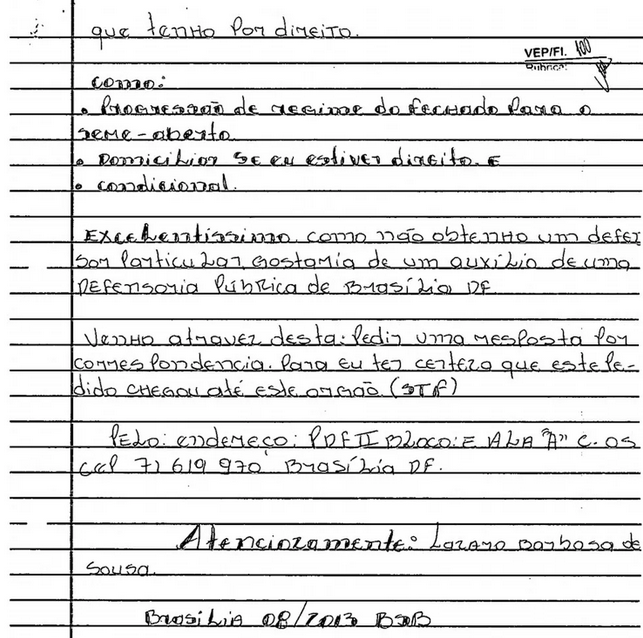 que tenho por direito.
VEP/Fl. 100
Rubrica:
como:
• Progressão de regime do fechado para o
seme-aberto
• Domicilior se eu estiver direito. E
• condicional.
Excelentissimo como não obtenho um defen
sor particular gostaria de um auxílio de uma
Defensoria Púbrica de Brasília DF
Venho atravez desta: Pedir uma resposta por
correspondencia. Para eu ter certeza que este pe-
dido chegou até este orgão. (STF)
Pelo: endereço: PDF II Bloco: E ALA "A" C. 05
cep 71 619 970 Brasília DF.
Atenciozamente: Lazaro Barbosa de
Sousa.
Brasilia 08/2013 BSB